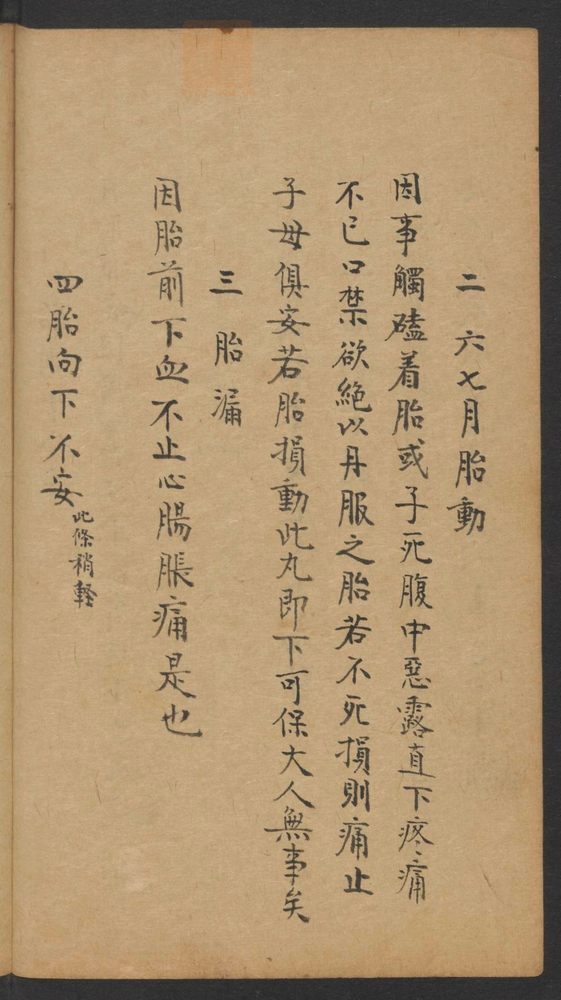 二 六七月胎動
因事觸磕着胎或子死腹中惡露直下疼痛
不已口禁欲絕以丹服之胎若不死損則痛止
子母俱安若胎損動此丸即下可保大人無事矣
三 胎漏
因胎前下血不止心腸脹痛是也
四胎向下不安此條稍軽